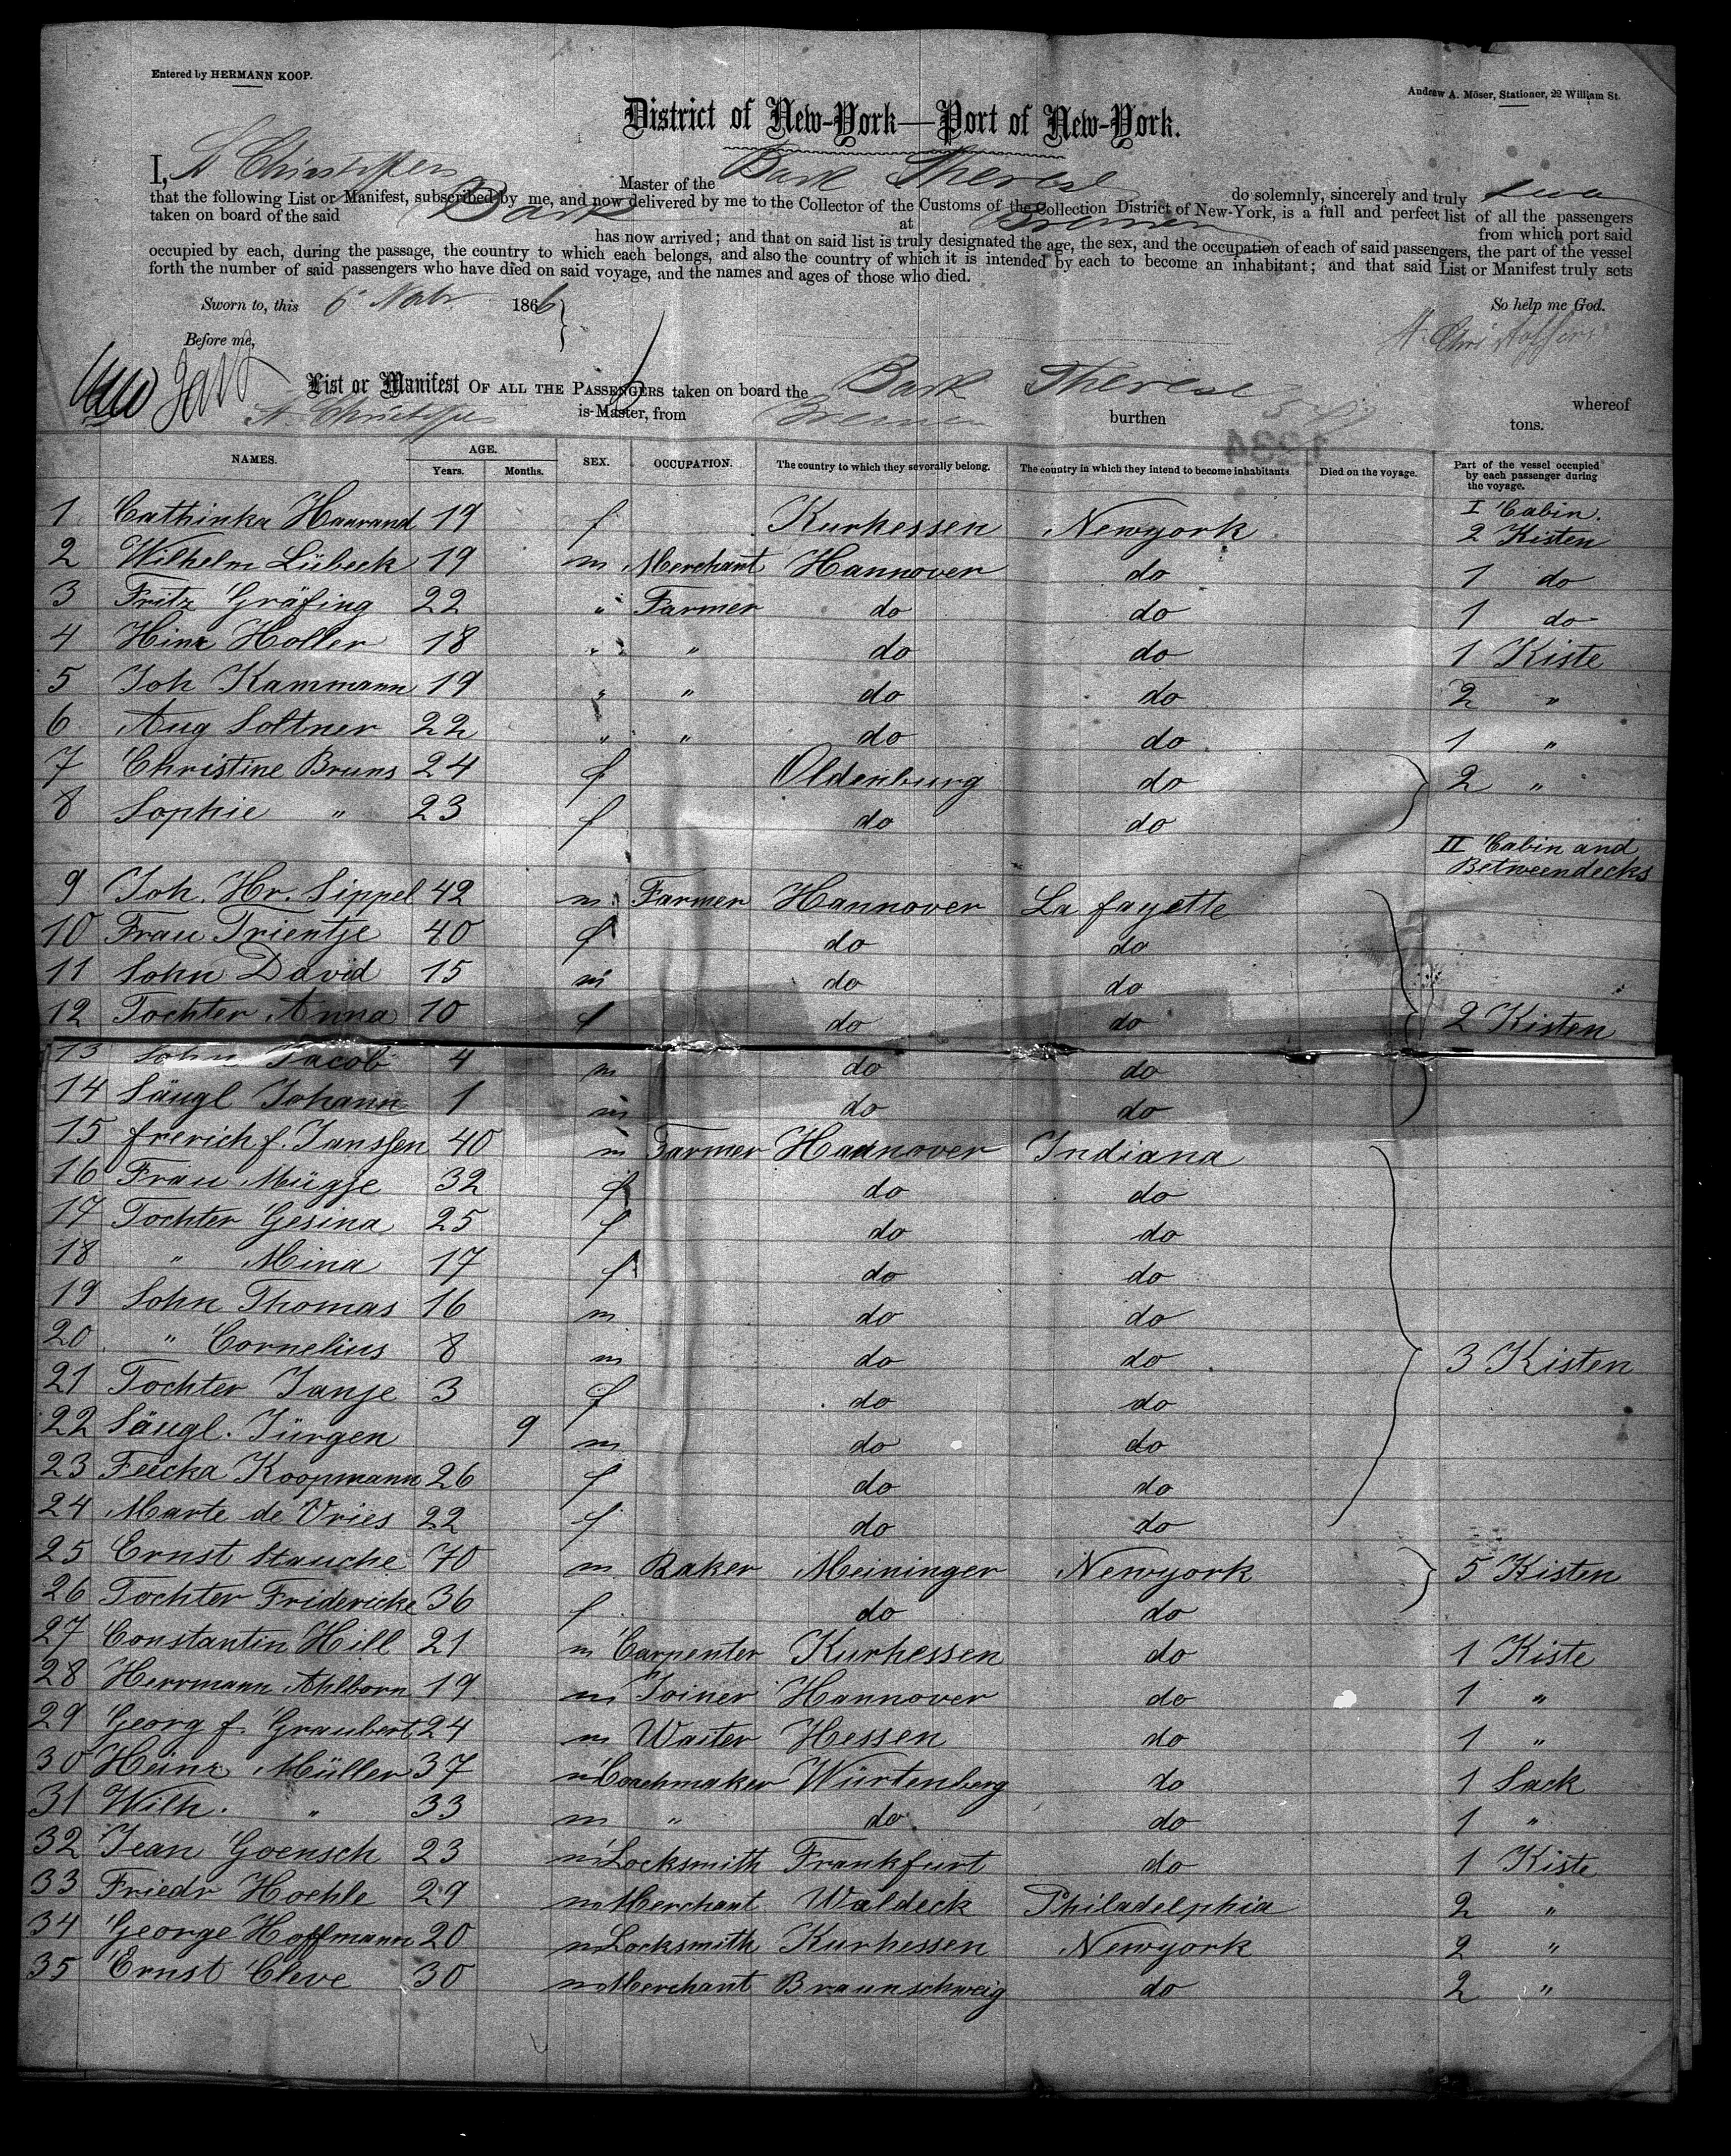 Entered by HERMANN KOOP.
Andrew A. Möser, Stationer, 22 William St.
District of New-York—Port of New-York.
I, Christoffers Master of the Bark Therese do solemnly, sincerely and truly swear
that the following List or Manifest, subscribed by me, and now delivered by me to the Collector of the Customs of the Collection District of New-York, is a full and perfect list of all the passengers
taken on board of the said Bark at Bremen from which port said
has now arrived; and that on said list is truly designated the age, the sex, and the occupation of each of said passengers, the part of the vessel
occupied by each, during the passage, the country to which each belongs, and also the country of which it is intended by each to become an inhabitant; and that said List or Manifest truly sets
forth the number of said passengers who have died on said voyage, and the names and ages of those who died.
Sworn to, this 6 Novbr 1866
So help me God.
Before me,
Christoffers
List or Manifest OF ALL THE PASSENGERS taken on board the Bark Therese whereof
Christoffers is Master, from Bremen burthen tons.
1234
NAMES. AGE. Years. Months. SEX. OCCUPATION. The country to which they severally belong. The country in which they intend to become inhabitants. Died on the voyage. Part of the vessel occupied by each passenger during the voyage.
I Cabin.
1 Cathinka Haurand 19 f Kurhessen Newyork 2 Kisten
2 Wilhelm Lübeck 19 m Merchant Hannover do 1 do
3 Fritz Gräfing 22 " Farmer do do 1 do
4 Hinr Holler 18 " " do do 1 Kiste
5 Joh Kammann 19 " " do do 2 "
6 Aug Soltner 22 " " do do 1 "
7 Christine Bruns 24 f Oldenburg do 2 "
8 Sophie " 23 f do do
II Cabin and
Betweendecks
9 Joh. Hr. Sippel 42 m Farmer Hannover La fayette
10 Frau Trientje 40 f do do
11 Sohn David 15 m do do
12 Tochter Anna 10 f do do 2 Kisten
13 Sohn Jacob 4 m do do
14 Säugl Johann 1 m do do
15 frerich f. Janssen 40 m Farmer Hannover Indiana
16 Frau Mügje 32 f do do
17 Tochter Gesina 25 f do do
18 " Mina 17 f do do
19 Sohn Thomas 16 m do do
20 " Cornelius 8 m do do 3 Kisten
21 Tochter Janje 3 f do do
22 Säugl. Jürgen 9 m do do
23 Feecka Koopmann 26 f do do
24 Marte de Vries 22 f do do
25 Ernst Stauche 70 m Baker Meininger Newyork 5 Kisten
26 Tochter Fridericke 36 f do do
27 Constantin Hill 21 m Carpenter Kurhessen do 1 Kiste
28 Herrmann Ahlborn 19 m Joiner Hannover do 1 "
29 Georg f. Graubert 24 m Waiter Hessen do 1 "
30 Heinr Müller 37 m Coachmaker Würtenberg do 1 Sack
31 Wilh. " 33 m " do do 1 "
32 Jean Goensch 23 m Locksmith Frankfurt do 1 Kiste
33 Friedr Hoehle 29 m Merchant Waldeck Philadelphia 2 "
34 George Hoffmann 20 m Locksmith Kurhessen Newyork 2 "
35 Ernst Cleve 30 m Merchant Braunschweig do 2 "